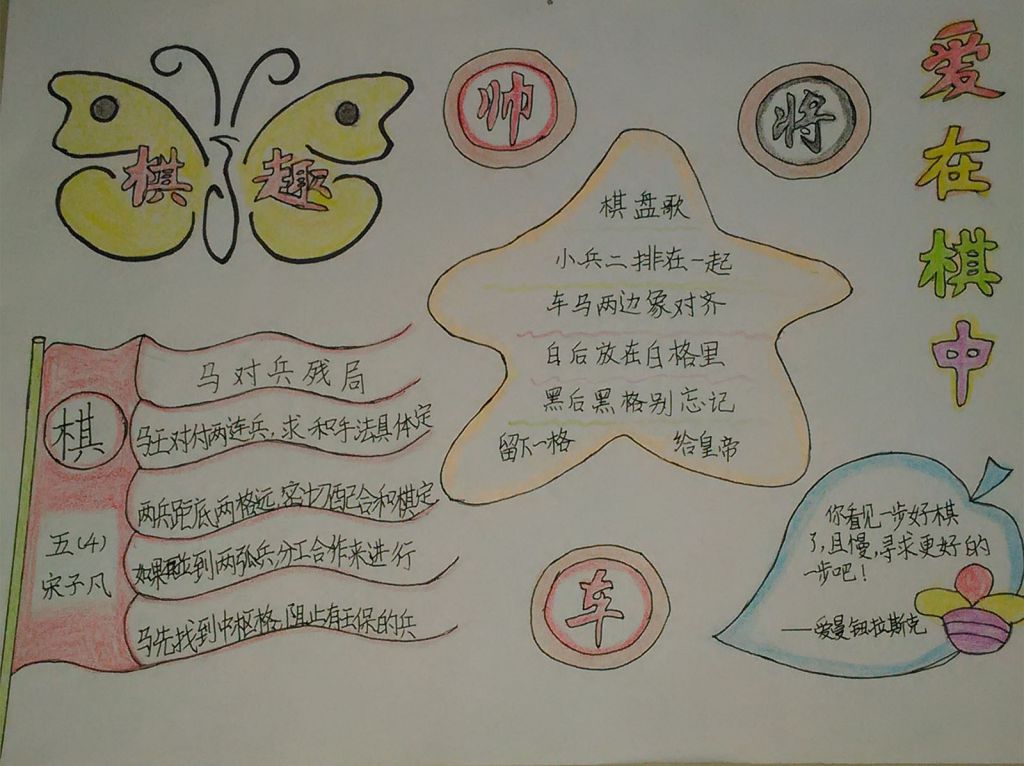 爱在棋中
棋趣
帅
将
棋盘歌
小兵二排在一起
车马两边象对齐
白后放在白格里
黑后黑格别忘记
留下一格 给皇帝
马对兵残局
马王对付两连兵，求和手法具体定
两兵距底两格远，密切配合和棋定
如果再 到两 兵，分工合作来进行
马先找到中枢格，阻止有王保的兵
棋
五（4）
宋子凡
车
你看见一步好棋
了，且慢，寻求更好的
一步吧！
——爱曼钮拉斯克